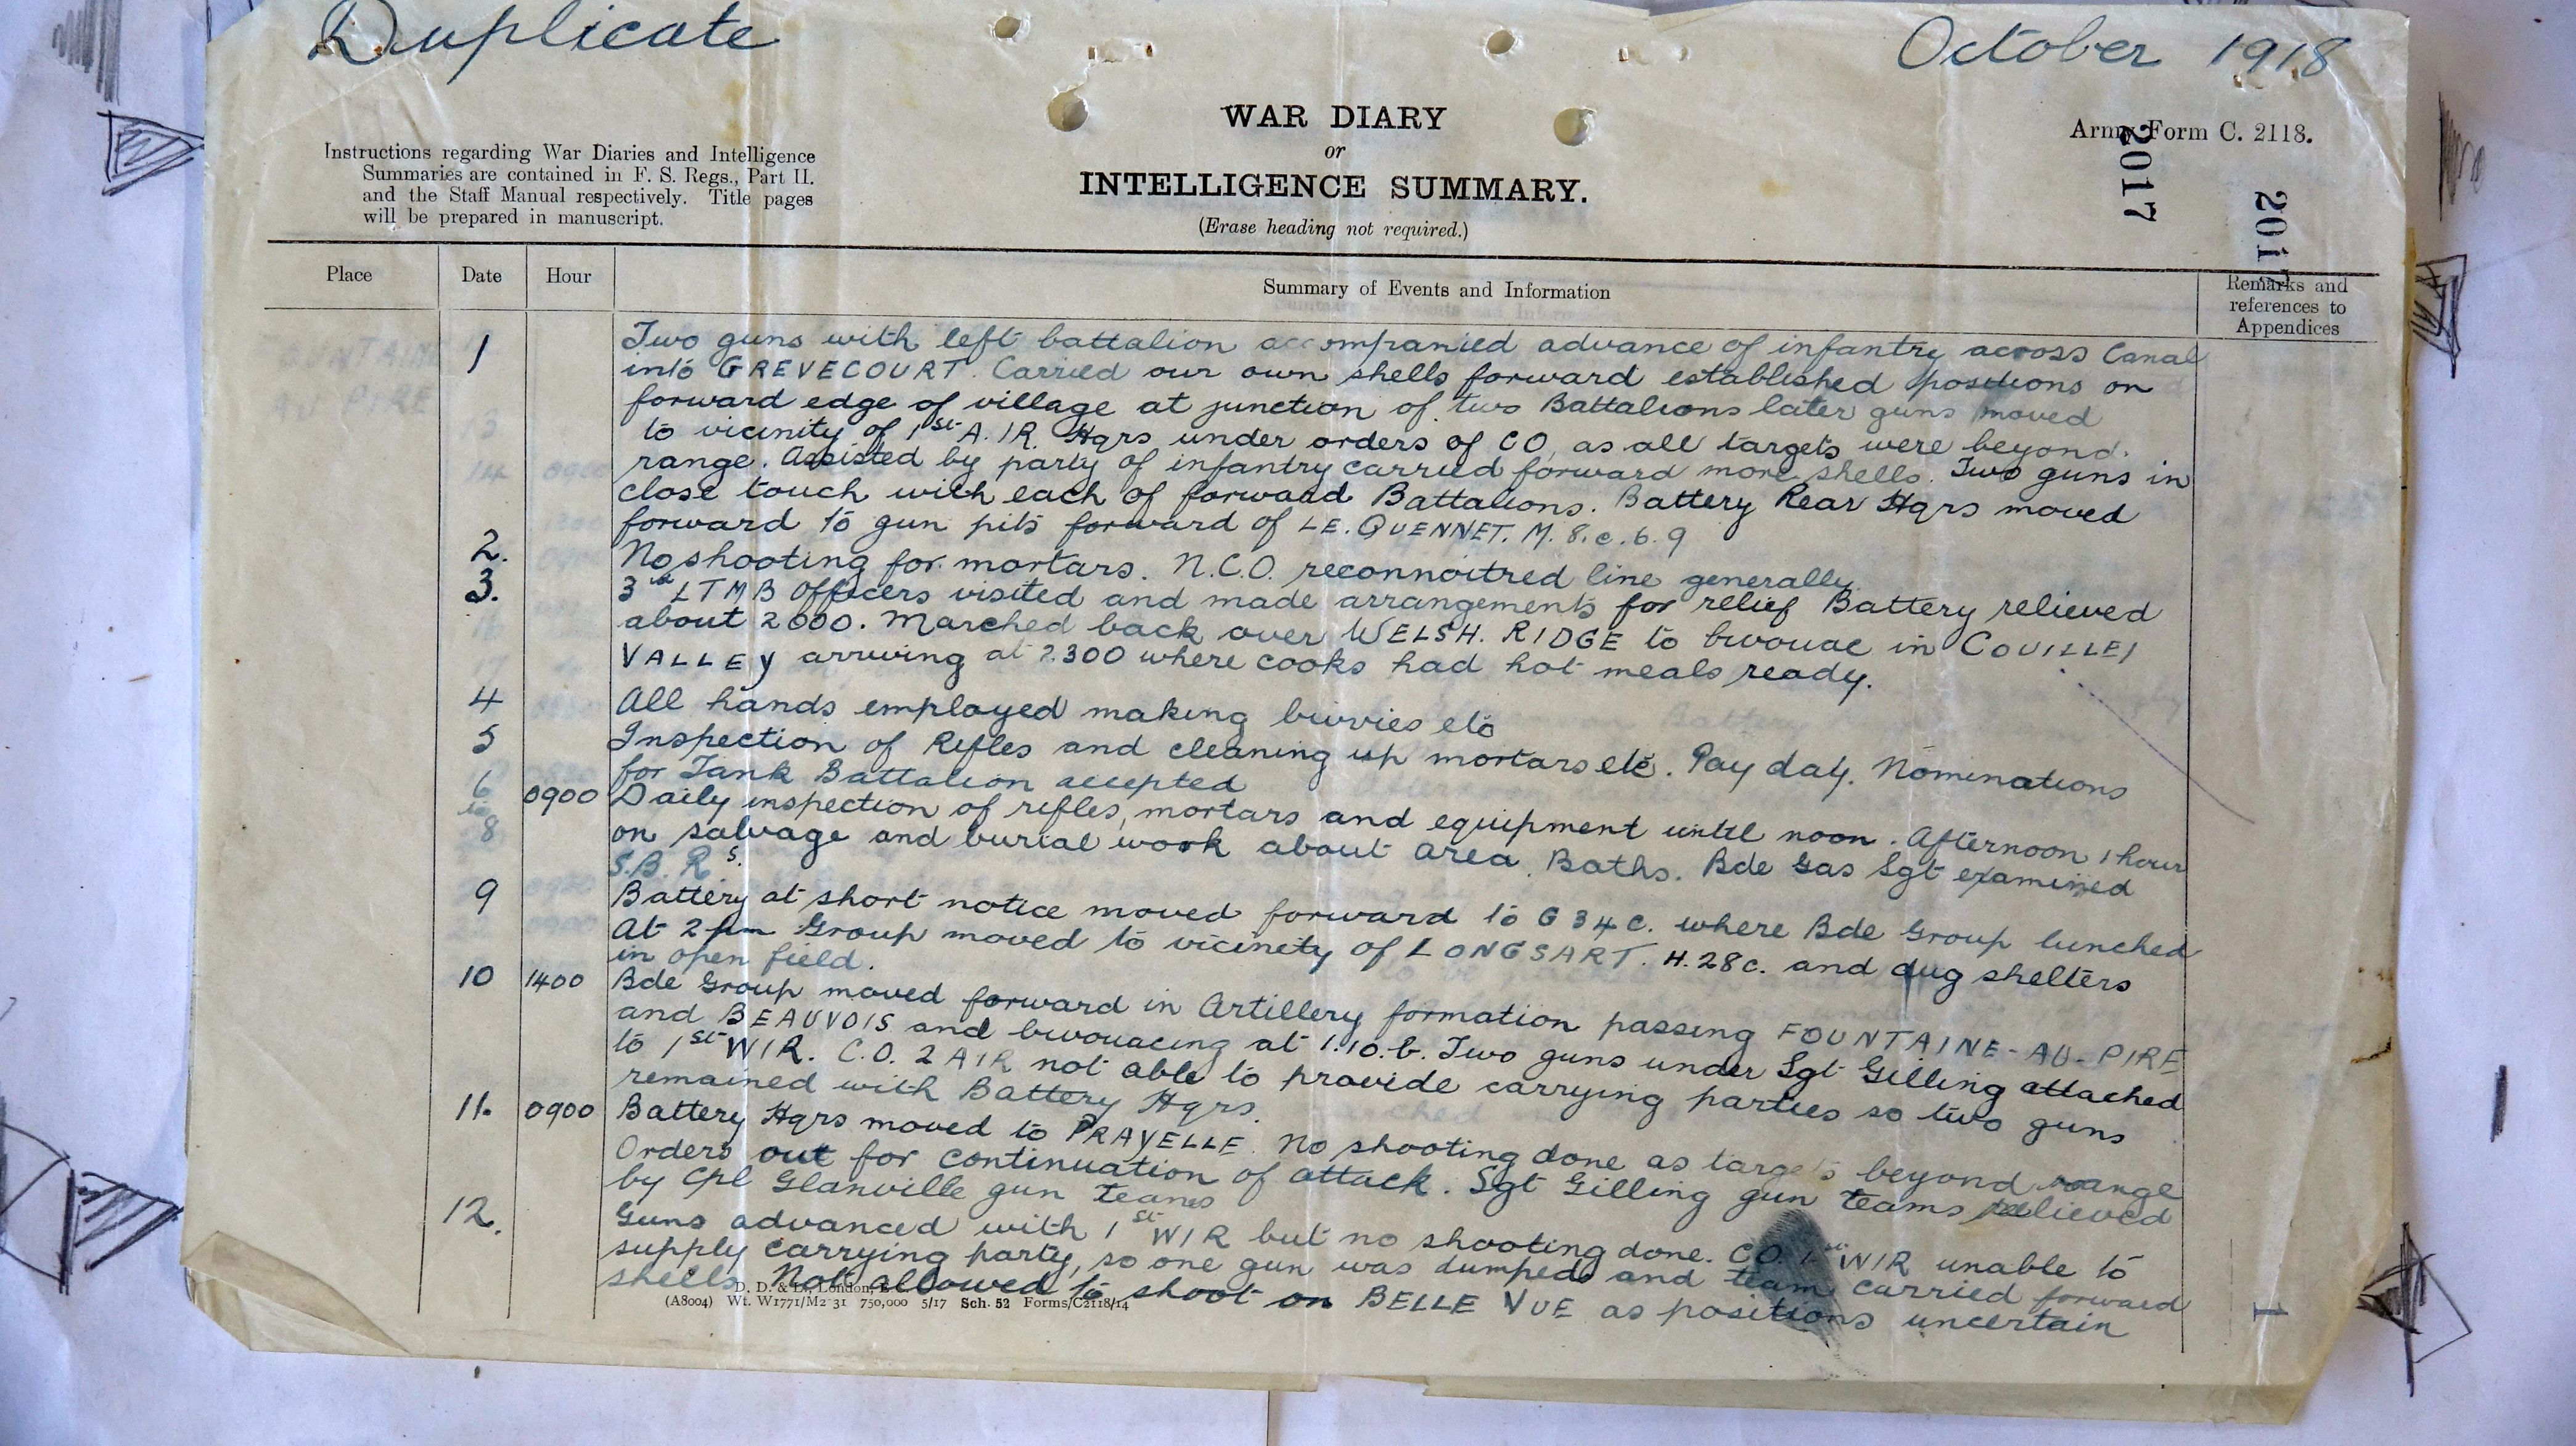 Duplicate
October 1918
WAR DIARY
or
INTELLIGENCE SUMMARY.
(Erase heading not required.)
Army Form C. 2118.
2017
2017
Instructions regarding War Diaries and Intelligence
Summaries are contained in F. S. Regs., Part II.
and the Staff Manual respectively. Title pages
will be prepared in manuscript.
Place
Date
Hour
Summary of Events and Information
Remarks and
references to
Appendices
1 Two guns with left battalion accompanied advance of infantry across Canal
into GREVECOURT. Carried our own shells forward established positions on
forward edge of village at junction of two Battalions later guns moved
to vicinity of 1st A.I.R. Hqrs under orders of CO, as all targets were beyond.
range. Assisted by party of infantry carried forward more shells. Two guns in
close touch with each of forward Battalions. Battery Rear Hqrs moved
forward to gun pits forward of LE. QUENNET. M. 8. c. 6. 9
2. No shooting for mortars. N.C.O. reconnoitred line generally
3. 3rd LTMB Officers visited and made arrangements for relief Battery relieved
about 2000. Marched back over WELSH. RIDGE to bivouac in COUILLET
VALLEY arriving at 2300 where cooks had hot meals ready.
4 All hands employed making bivvies etc
5 Inspection of Rifles and cleaning up mortars etc. Pay day. Nominations
for Tank Battalion accepted
6 to 8 0900 Daily inspection of rifles, mortars and equipment until noon. Afternoon 1 hour
on salvage and burial work about area. Baths. Bde Gas Sgt examined
S.B.Rs.
9 Battery at short notice moved forward to G 34 c. where Bde Group lunched
At 2 pm Group moved to vicinity of LONGSART. H.28c. and dug shelters
in open field.
10 1400 Bde Group moved forward in Artillery formation passing FOUNTAINE-AU-PIRE
and BEAUVOIS and bivouacing at I.10.b. Two guns under Sgt Gilling attached
to 1st WIR. C.O. 2 AIR not able to provide carrying parties so two guns
remained with Battery Hqrs.
11. 0900 Battery Hqrs moved to PRAYELLE. No shooting done as targets beyond range
Orders out for continuation of attack. Sgt Gilling gun teams relieved
by Cpl Glanville gun teams
12. Guns advanced with 1st WIR but no shooting done. CO. 1st WIR unable to
supply carrying party, so one gun was dumped and team carried forward
shells. Not allowed to shoot on BELLE VUE as positions uncertain
D. D. & L., London, E.C.
(A8004) Wt. W1771/M2 31 750,000 5/17 Sch. 52 Forms/C2118/14
1